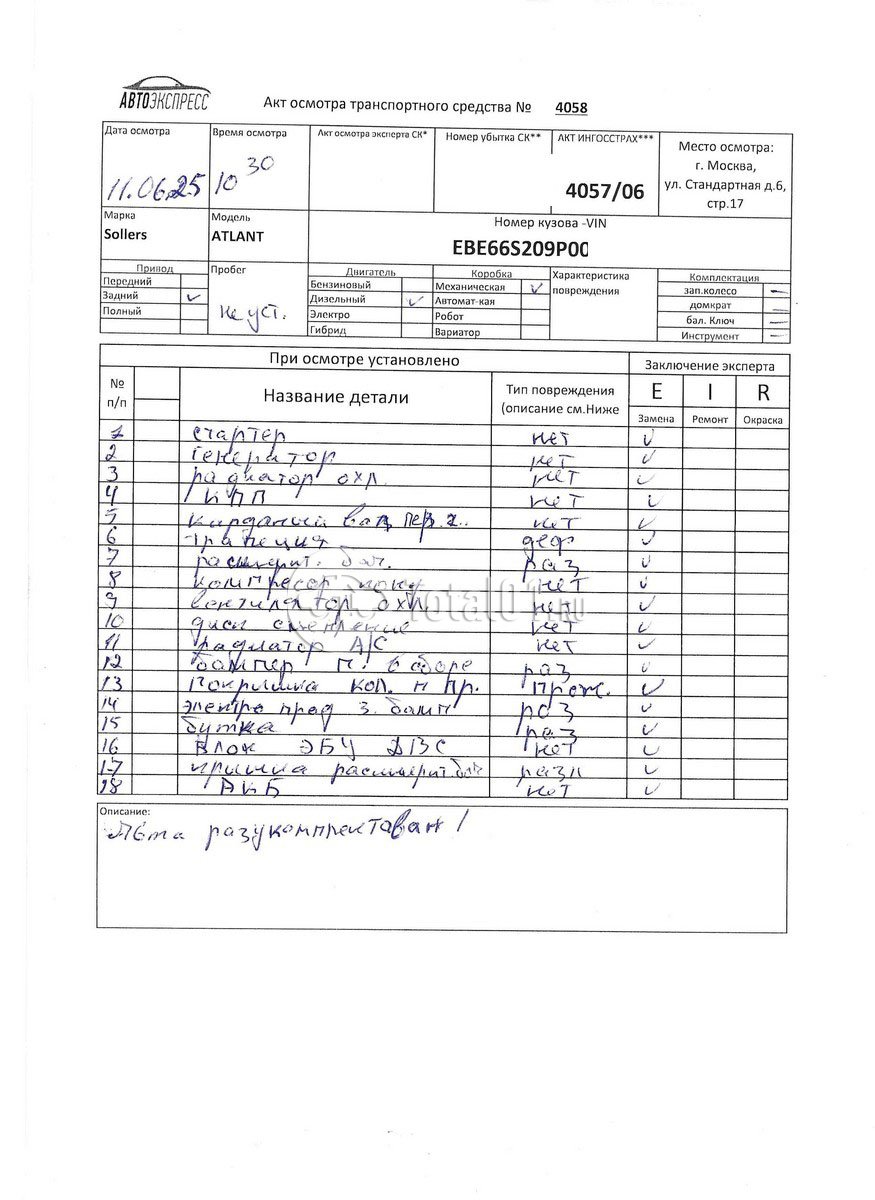 АВТОЭКСПРЕСС
Акт осмотра транспортного средства № 4058
Дата осмотра Время осмотра Акт осмотра эксперта СК* Номер убытка СК** АКТ ИНГОССТРАХ***
Место осмотра:
г. Москва,
ул. Стандартная д.6,
стр.17
11.06.25 10 30 4057/06
Марка Модель Номер кузова -VIN
Sollers ATLANT EBE66S209P00
Привод Пробег Двигатель Коробка Характеристика повреждения Комплектация
Передний Бензиновый Механическая ✓ зап.колесо —
Задний ✓ не уст. Дизельный ✓ Автомат-кая домкрат —
Полный Электро Робот бал. Ключ —
Гибрид Вариатор Инструмент —
При осмотре установлено Заключение эксперта
№ п/п Название детали Тип повреждения (описание см.Ниже E I R
Замена Ремонт Окраска
1 стартер нет ✓
2 генератор нет ✓
3 радиатор охл. нет ✓
4 КПП нет ✓
5 карданый вал пер. нет ✓
6 трапеция деф ✓
7 расширит. бач. раз ✓
8 компрессор конд. нет ✓
9 вентилятор охл. нет ✓
10 диск сцепление нет ✓
11 радиатор А/С нет ✓
12 бампер п. в сборе раз ✓
13 покришка кол. п пр. ✓
14 электро пров з. бамп раз ✓
15 раз ✓
16 Блок ЭБУ ДВС нет ✓
17 кришка расширит бач разл ✓
18 АКБ нет ✓
Total01.RU
Описание:
разукомплектован!